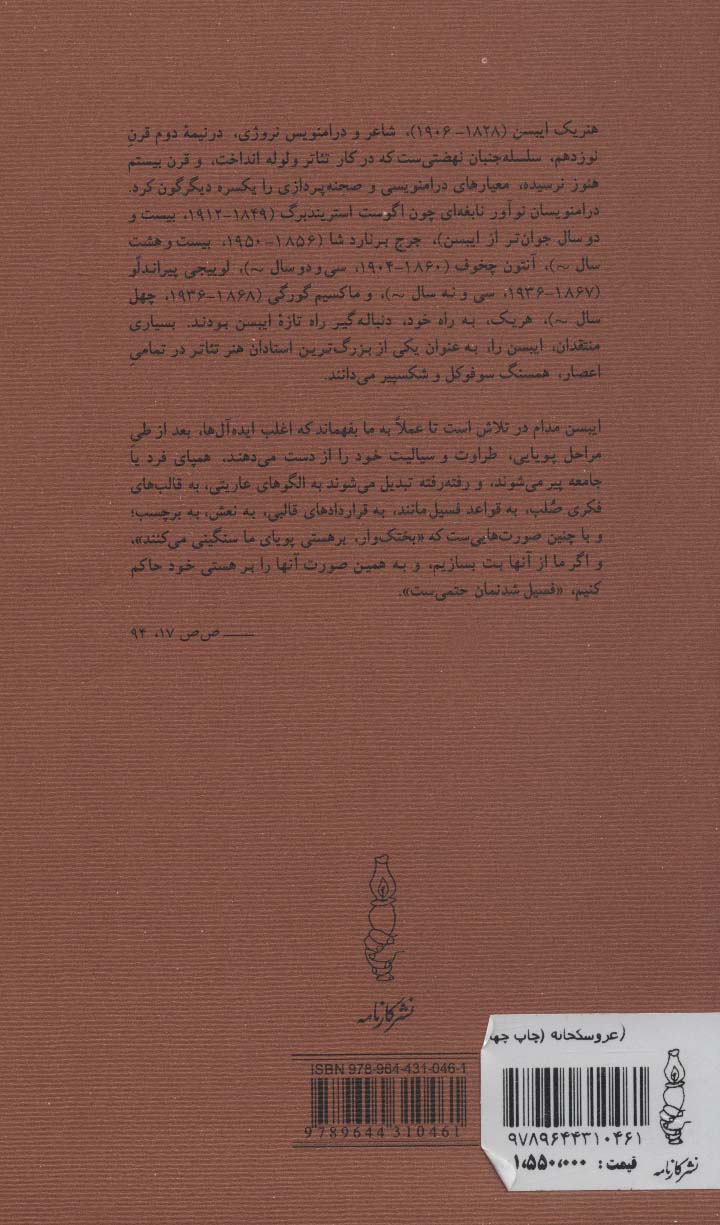 هنریک ایبسن (۱۸۲۸-۱۹۰۶)، شاعر و درامنویس نروژی، درنیمهٔ دوم قرنِ
نوزدهم، سلسله‌جنبان نهضتی‌ست که در کار تئاتر ولوله انداخت، و قرن بیستم
هنوز نرسیده، معیارهای درامنویسی و صحنه‌پردازی را یکسره دیگرگون کرد.
درامنویسان نوآور نابغه‌ای چون اگوست استریندبرگ (۱۸۴۹-۱۹۱۲، بیست و
دو سال جوان‌تر از ایبسن)، جرج برنارد شا (۱۸۵۶-۱۹۵۰، بیست و هشت
سال ~)، آنتون چخوف (۱۸۶۰-۱۹۰۴، سی و دو سال ~)، لوییجی پیراندلّو
(۱۸۶۷-۱۹۳۶، سی و نه سال ~)، و ماکسیم گورگی (۱۸۶۸-۱۹۳۶، چهل
سال ~)، هریک، به راه خود، دنباله‌گیر راه تازهٔ ایبسن بودند. بسیاری
منتقدان، ایبسن را، به عنوان یکی از بزرگ‌ترین استادان هنر تئاتر در تمامیِ
اعصار، همسنگ سوفوکل و شکسپیر می‌دانند.
ایبسن مدام در تلاش است تا عملاً به ما بفهماند که اغلب ایده‌آل‌ها، بعد از طیِ
مراحل پویایی، طراوت و سیالیت خود را از دست می‌دهند. همپای فرد یا
جامعه پیر می‌شوند، و رفته‌رفته تبدیل می‌شوند به الگوهای عاریتی، به قالب‌های
فکری صُلب، به قواعد فسیل‌مانند، به قراردادهای قالبی، به نعش، به برچسب؛
و با چنین صورت‌هایی‌ست که «بختک‌وار، بر هستی پویای ما سنگینی می‌کنند»،
و اگر ما از آنها بت بسازیم، و به همین صورت آنها را بر هستی خود حاکم
کنیم، «فسیل شدنمان حتمی‌ست».
—— ص‌ص ۱۷، ۹۴
نشر کارنامه
ISBN 978-964-431-046-1
9789644310461
(عروسکخانه (چاپ چها
۹۷۸۹۶۴۴۳۱۰۴۶۱
قیمت: ۱،۵۵۰،۰۰۰
نشر کارنامه